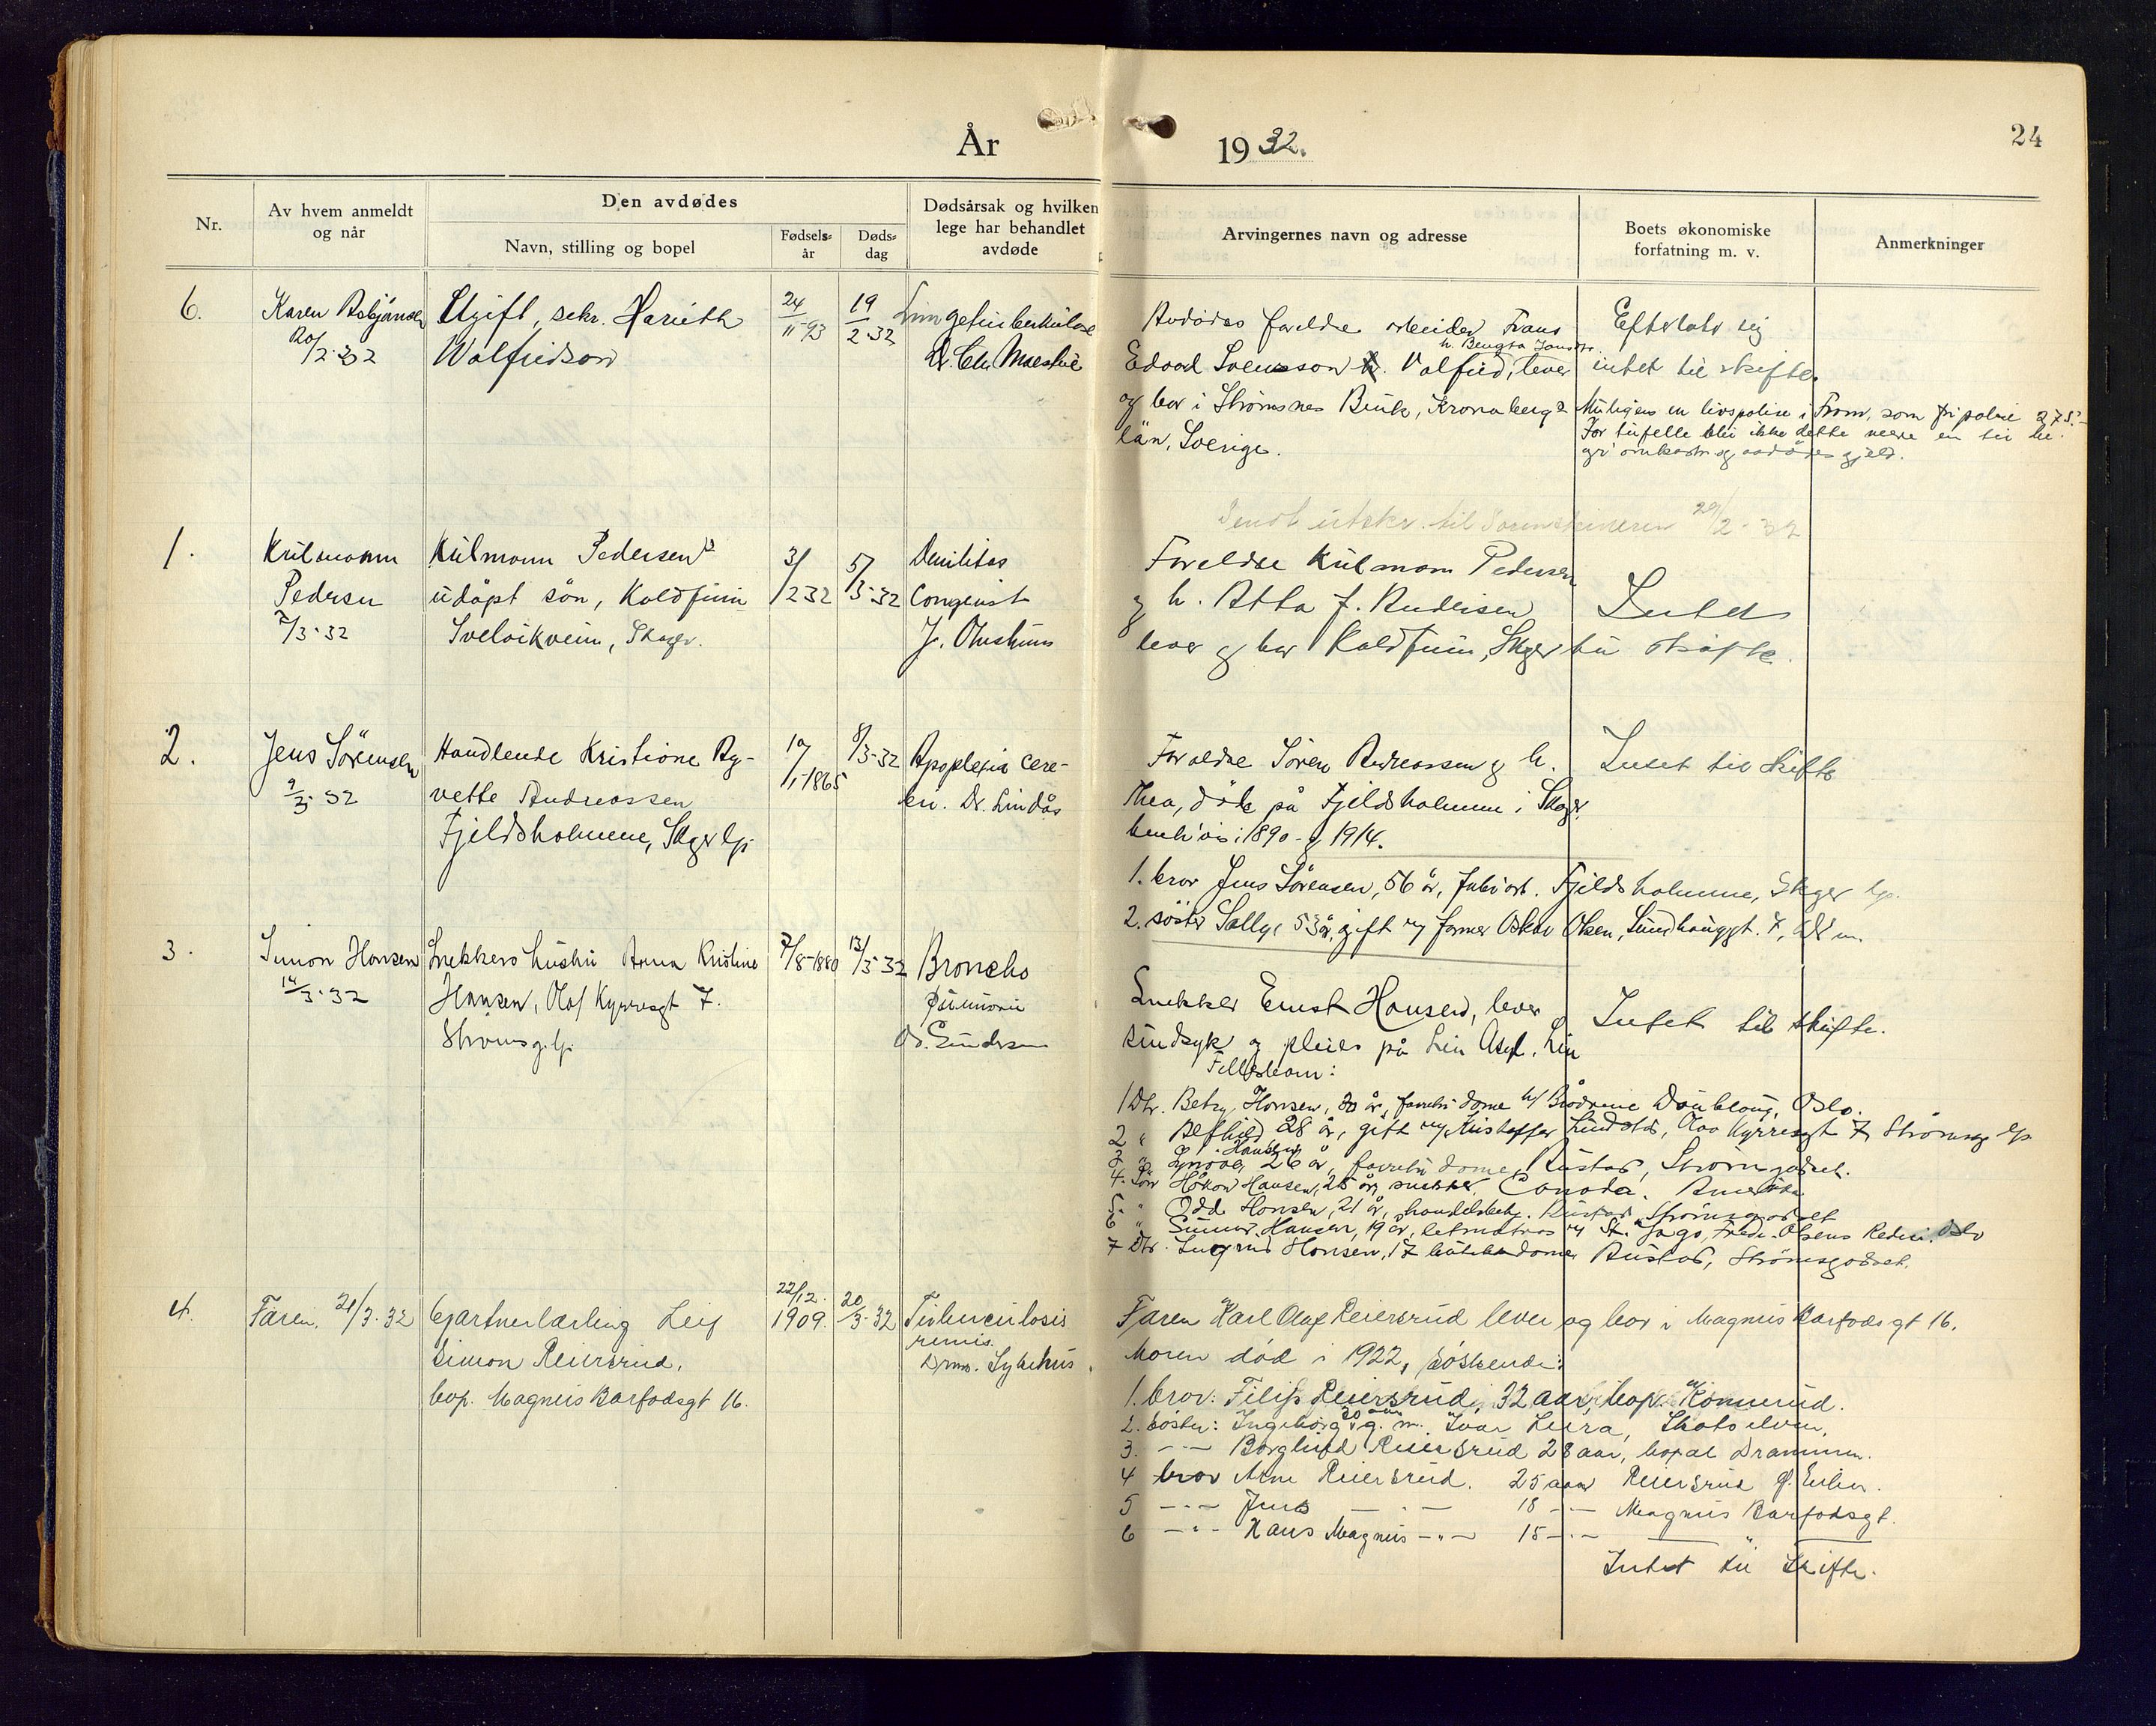 År 1932.
24
Nr.
Av hvem anmeldt og når
Den avdødes
Navn, stilling og bopel
Fødsels-år
Døds-dag
Dødsårsak og hvilken lege har behandlet avdøde
Arvingernes navn og adresse
Boets økonomiske forfatning m. v.
Anmerkninger
6.
Karen Asbjörnsen
20/2-32
Ugift, sekr. Harieth
Wolfridson
24/11-93
19/2-32
Lungetuberkulose
Avdödes foreldre arbeider Frans
h. Bengta
Edvard Svensson Valfrid, lever
og bor i Strömsnes Bruk, Kronobergs
län, Sverige.
Efterlate sig
intet til skifte.
Muligens en livspolise i Fram, som fripolise 275.-
For tilfelle blir ikke dette mere en til be-
gr. omkostn og avdödes gjeld.
Sendt utskr. til Sorenskriveren 29/2-32
1.
Kulmann
Pedersen
7/3-32
Kulmann Pedersens
udöpt sön, Koldfunn
Svelvikveien, Skoger.
3/12 32
5/3-32
Foreldre Kulmann Pedersen
og h. Atta f. Andersen
lever og bor Koldfunn, Skger
Intet
til skifte.
2.
Jens Sörensen
9/3-32
Handlende Kristiane Ag-
vette Andreassen
Fjeldsholmene, Skger lp.
19/1-1865
8/3-32
Apoplexia cere-
bri. Dr. Lindås
Foreldre Sören Andreassen og h.
Thea, döde på Fjeldsholmene i Skoger
henh'vis i 1890 - og 1914.
1. bror Jens Sörensen, 56 år, fabr.arb. Fjeldsholmene, Skger lp.
2. söster Sally, 53 år, gift m/ former Oskar Olsen, Lundhauggt. 7,
Intet til skifte
3.
Simon Hansen
14/3-32
Snekkers hustru Anna Kristine
Hansen, Olaf Kyrresgt 7.
Strömsg. lp.
7/8-1880
13/3-32
Broncho
pnevmoni
Snekker Ernst Hansen, lever
sindsyk og pleies på Lier Asyl, Lier
Fellesbarn:
Intet til skifte.
1 Dtr. Betzy Hansen, 30 år, forretn.dame h/ Brödrene Oslo.
2 " 28 år, gift m/ Kristoffer Lindstad, Olav Kyrresgt 7, Strömsg lp
3 " Hansen 26 år, forretn dame, Rustad, Strömsgodset.
4. Sön Håkon Hansen, 25 år, snekker, Canada. Amerika
5. " Odd Hansen, 21 år, handelsbetj. Rustad Strömsgodset
6 " Gunnar Hansen, 19 år, letmatros m/ St. Jago, Fred. Olsens Rederi. Oslo
7 Dtr. Ingrid Hansen, 17 butikkdame Rustad, Strömsgodset.
4.
Faren, 21/3-32
Gjartnerlærling Leif
Simon Reiersrud,
bop. Magnus Barfodsgt 16.
22/12.
1909.
20/3-32
Tuberculosis
renis.
Drm. Sykehus.
Faren Karl Olaf Reiersrud lever og bor i Magnus Barfodsgt 16.
Moren död i 1922, söskende:
1. bror: Filip Reiersrud, 32 aar, bop. Konnerud.
2. söster: Ingeborg 30 aar g. m. Ivar Leira, Skotselven,
3. -"- Borghild Reiersrud 28 aar, bopæl Drammen.
4 bror Arne Reiersrud. 25 aar Reiersrud Ø. Eiker.
5 -"- Jens -"- 18 -"- Magnus Barfodsgt.
6 -"- Hans Magnus -"- 15 -"- "
Intet til skifte.